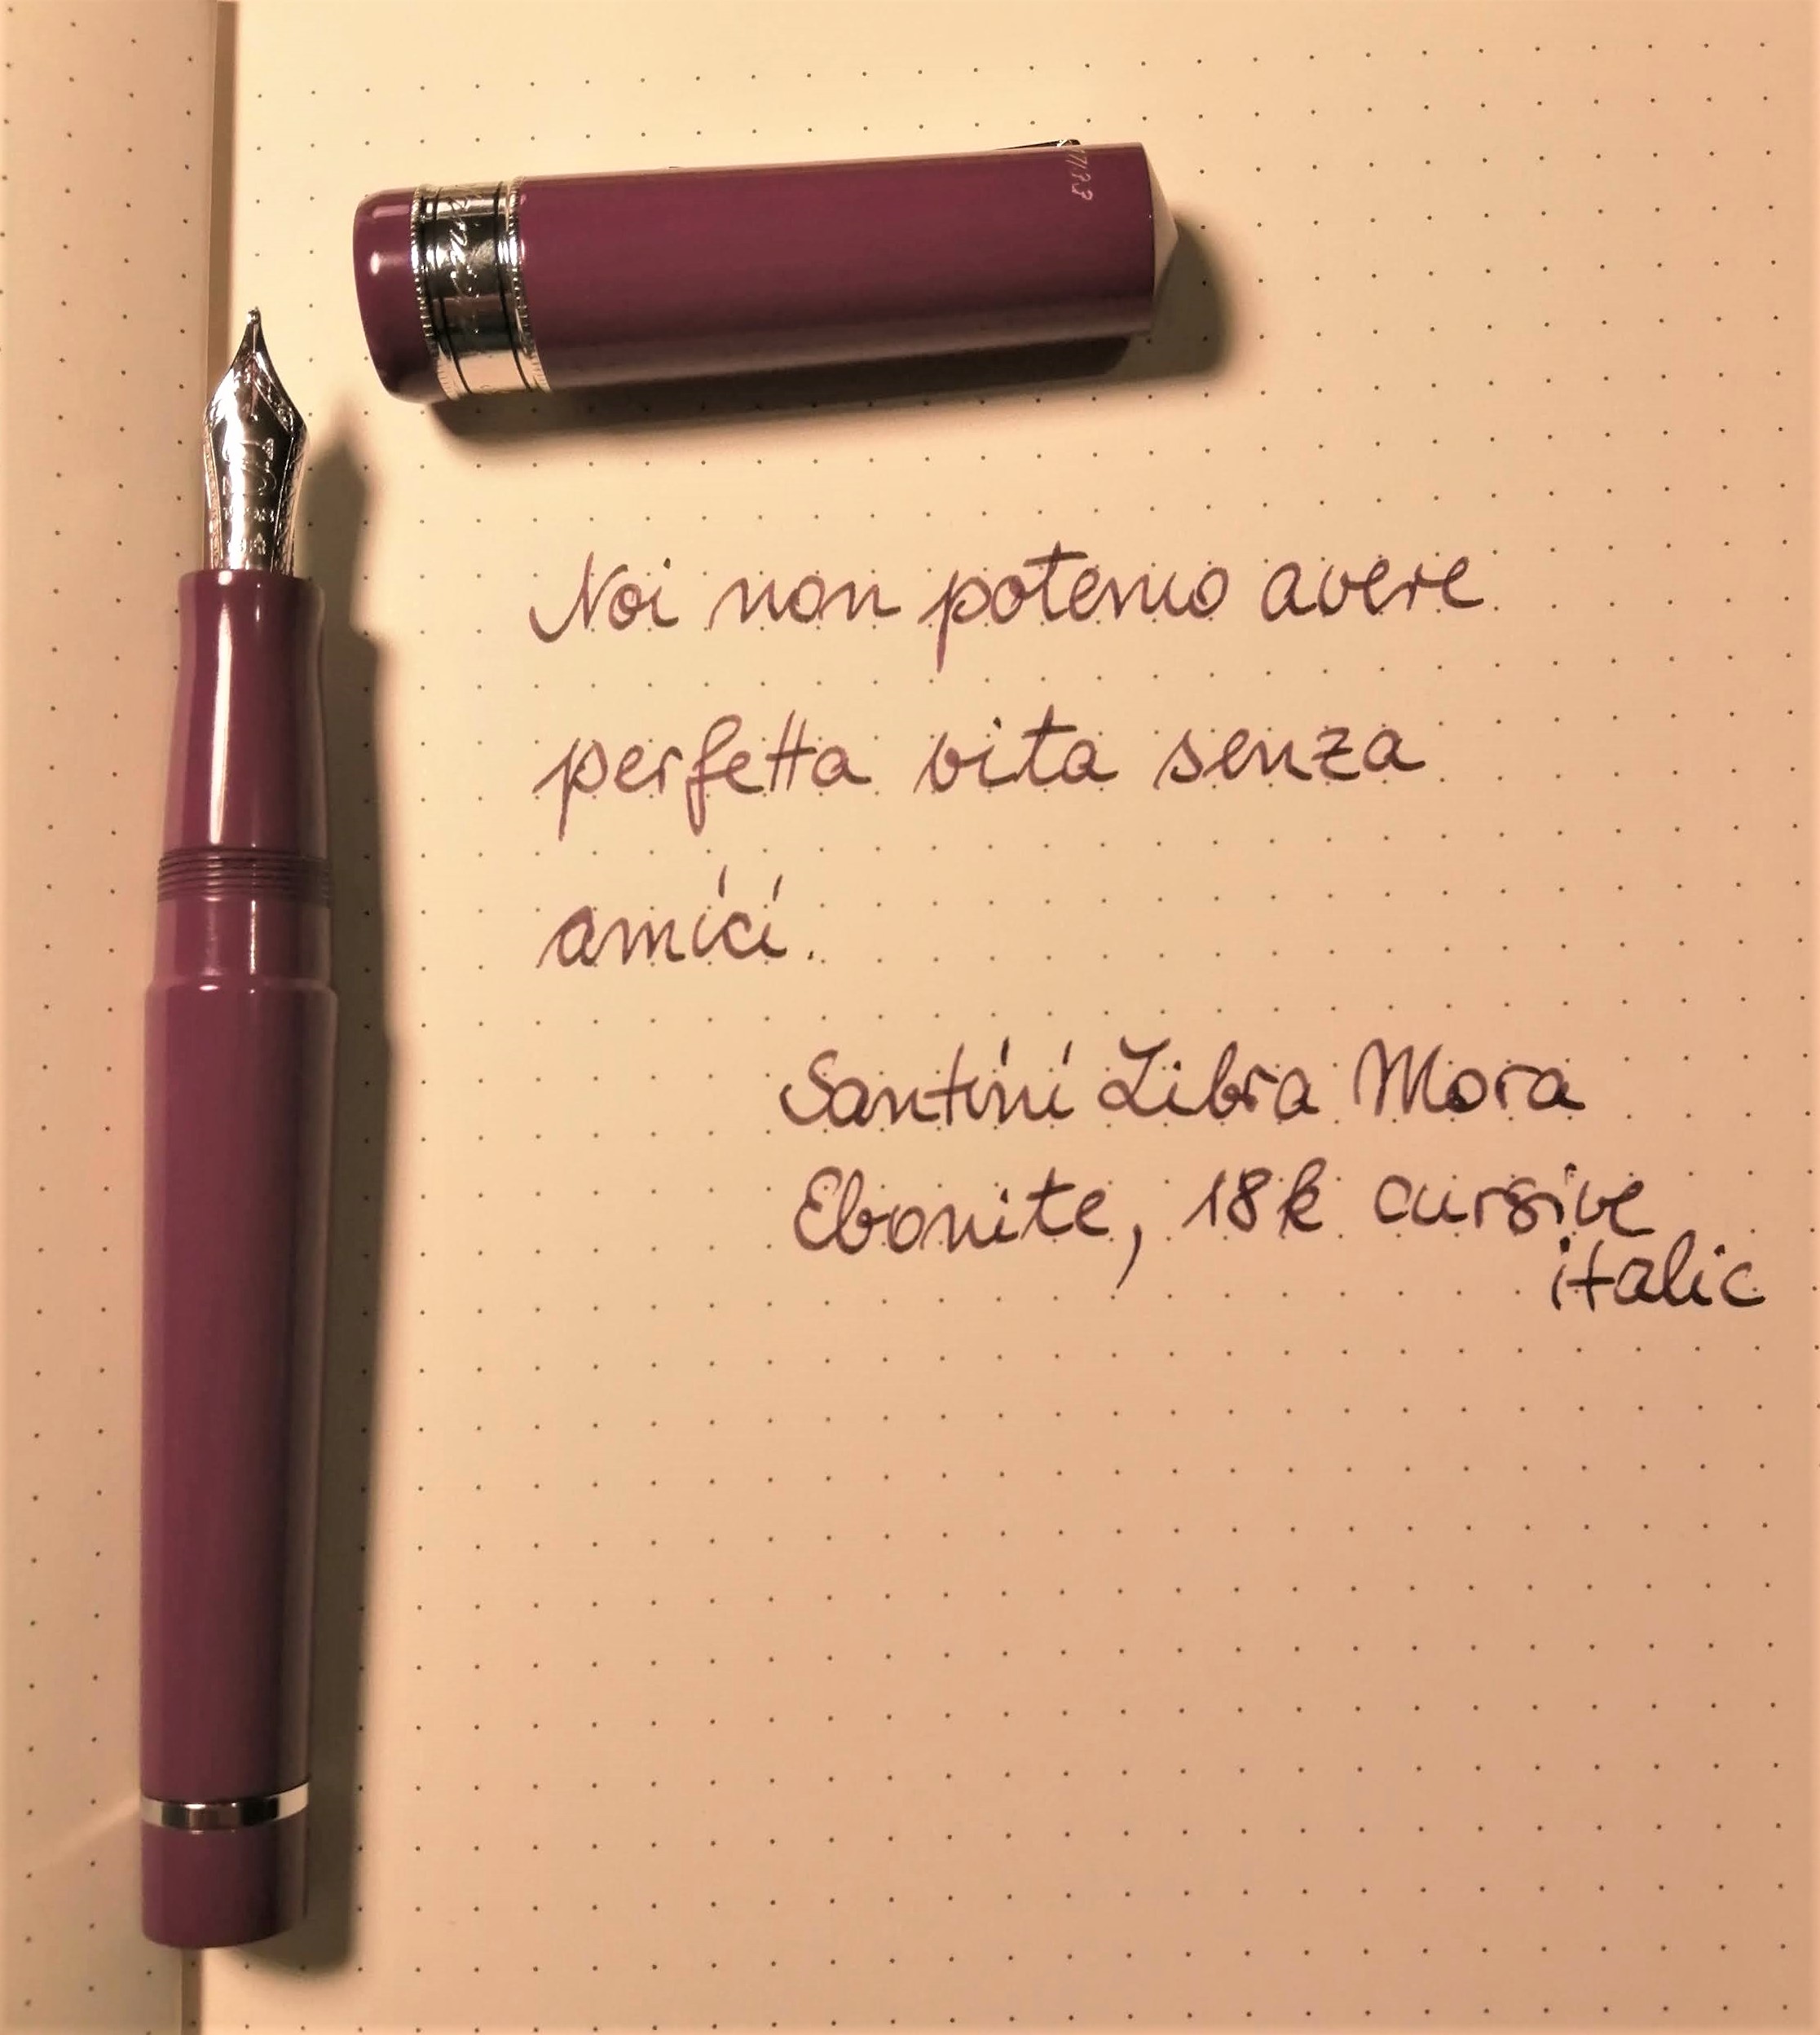 Noi non potemo avere
perfetta vita senza
amici.
Santini Libra Mora
Ebonite, 18k cursive
italic